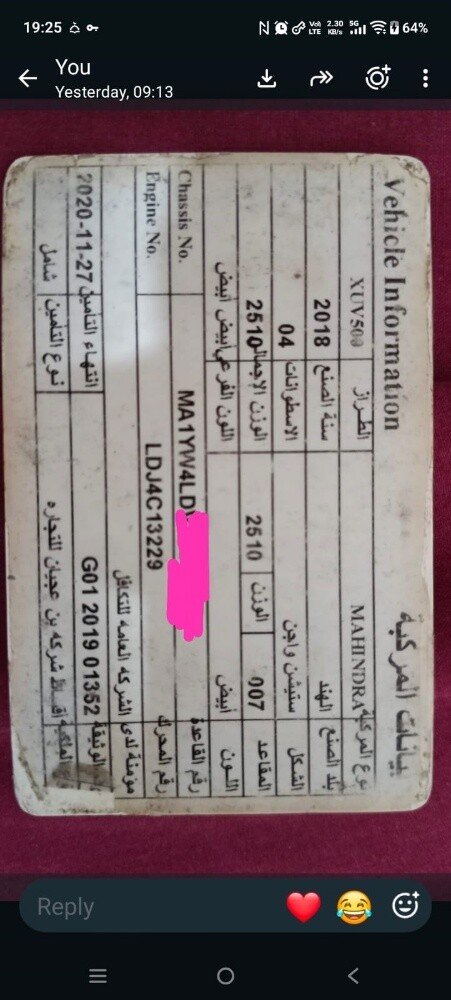 19:25
Vol LTE 2.30 KB/s 5G 64%
You
Yesterday, 09:13
Vehicle Information بيانات المركبة
XUV500 الطراز MAHINDRA نوع المركبة
2018 سنة الصنع الهند بلد الصنع
04 الاسطوانات ستيشن واجن الشكل
2510 الوزن الإجمالي 2510 الوزن 007 المقاعد
أبيض أبيض اللون الفرعي أبيض اللون
Chassis No. MA1YW4LD رقم القاعدة
Engine No. LDJ4C13229 رقم المحرك
مؤمنة لدى الشركة العامه للتكافل
2020-11-27 انتهاء التأمين G01 2019 01352 الوثيقة
شامل نوع التأمين شركه بن عجيان للتجاره
Reply